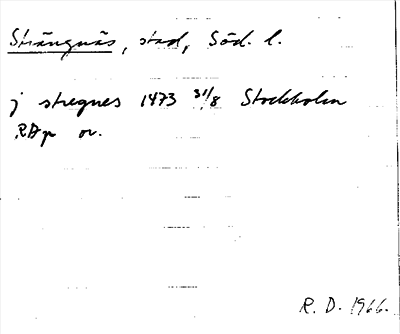 Strängnäs, stad, Söd. l.
j stregnes 1473 31/8 Stockholm
RAp or.
R. D. 1966.